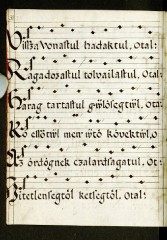 Vißa Vonastul hadaktul, otal:
Ragadozastul tolvailastul, otal:
Harag tartastul gyẅlölsegtẅl, otal:
Kö essötẅl men ẅtö kövektẅl, o
Az ördögnek czalardsagatul, ot:
Hitetlensegtöl ketsegtöl, otal: